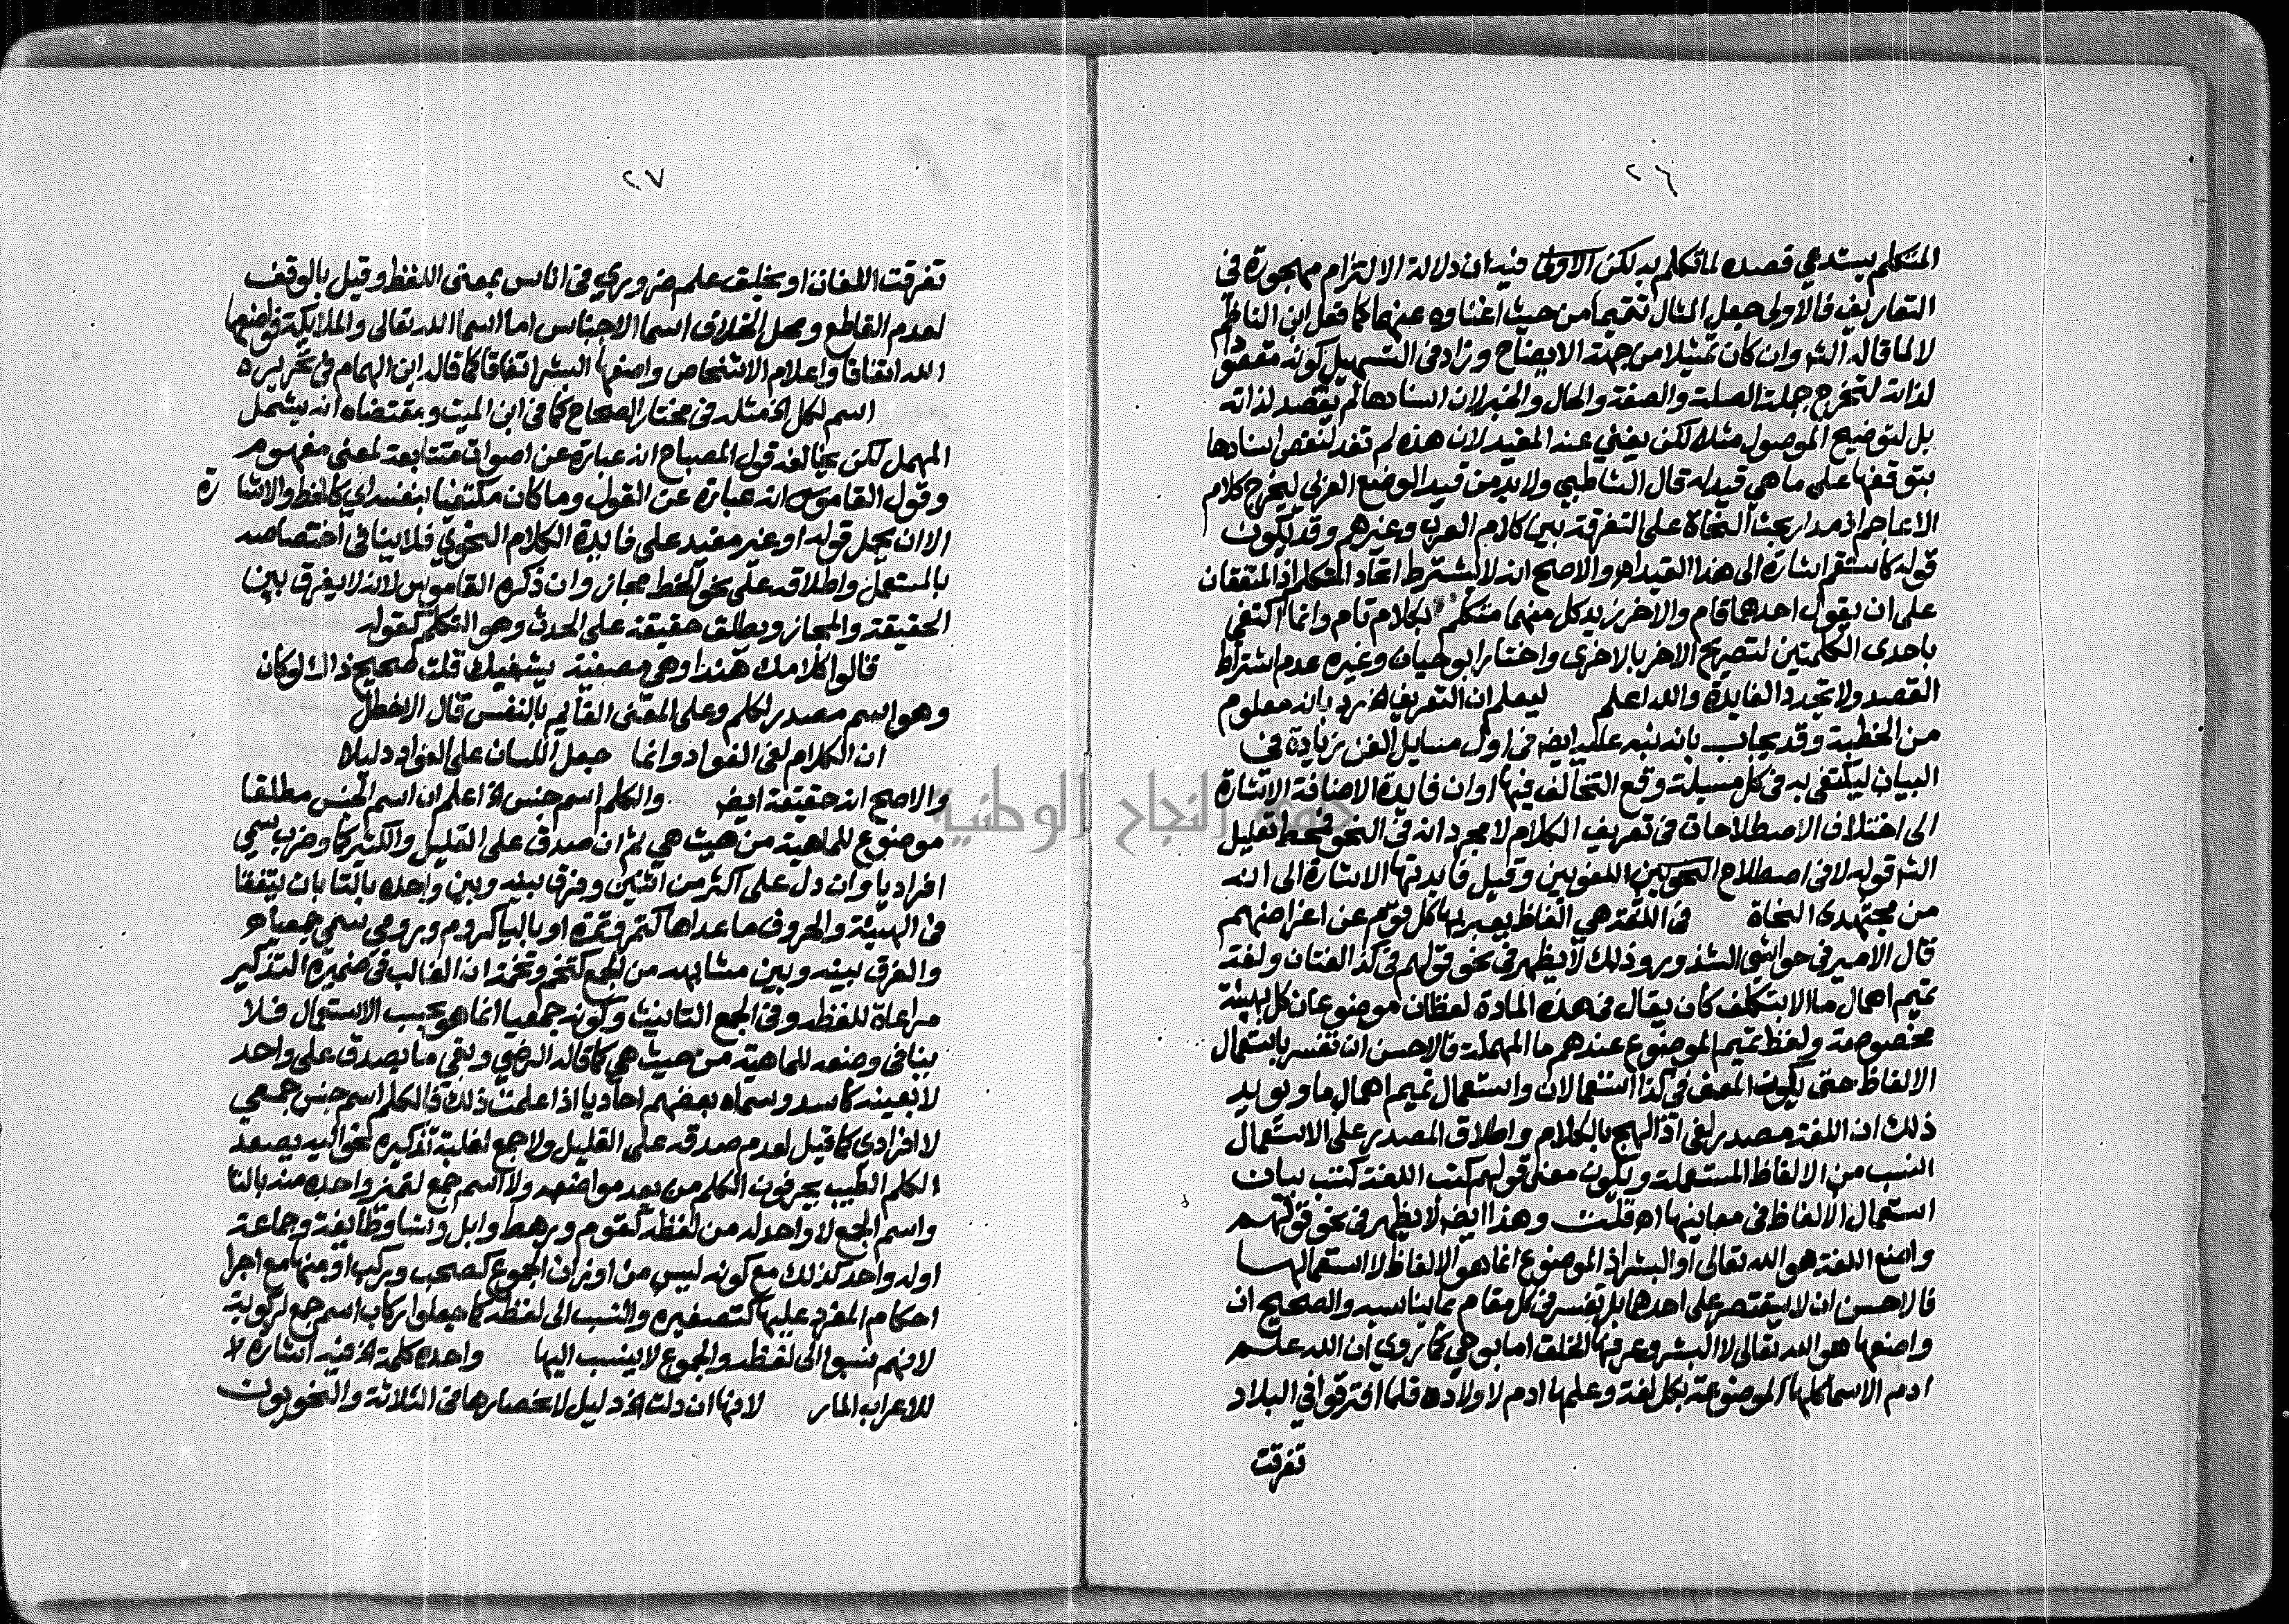 ٢٦
المتكلم يستدعي قصده لما تكلم به لكن الاولى فيه ان دلالة الالتزام مهجورة في
التعاريف فالاولى جعل المثال تتميما من حيث اغناوه عنهما كما فعل ابن الناظم
لا لما قاله الش وان كان تمثيلا من جهة الايضاح وزاد في التسهيل كونه مقصودا
لذاته لتخرج جملة الصلة والصفة والحال والخبر لان اسنادها لم يقصد لذاته
بل لتوضيح الموصول مثلا لكن يغني عنه المفيد لان هذه لم تفد لنقص اسنادها
بتوقفها على ما هي قيد له قال الشاطبي ولابد من قيد الوضع العربي ليخرج كلام
الاعاجم اذ مدار بحث النحاة على التفرقة بين كلام العرب وغيرهم وقد يكون
قوله كاستقم اشارة الى هذا القيد اه والاصح انه لا يشترط اتحاد المتكلم اذ المتفقان
على ان يقول احدهما قام والاخر زيد كل منهما متكلم بكلام تام وانما اكتفى
باحدى الكلمتين لتصريح الاخر بالاخرى واختار ابو حيان وغيره عدم اشتراط
القصد ولا تجدد الفايدة والله اعلم ليعلم ان التعريف الخ رد بانه معلوم
من الخطبة وقد يجاب بانه نبه عليه ايضا في اول مسايل الفن زيادة في
البيان ليكتفى به في كل مسيلة وقع التخالف فيها او ان فايدة الاضافة الاشارة
الى اختلاف الاصطلاحات في تعريف الكلام لا مجرد انه في النحو فحط تعليل
الش قوله لا في اصطلاح اللغويين وقيل فايدتها الاشارة الى انه
من مجتهدى النحاة في اللغة هي الفاظ يعبر بها كل قوم عن اغراضهم
قال الامير في حواشي الشذور وذلك لا يظهر في نحو قولهم في كذا لغتان ولغة
تميم اهمال ما الا بتكلف كان يقال في هذه المادة لفظان موضوعان كل بهيئة
مخصوصة ولفظ تميم الموضوع عندهم ما المهملة فالاحسن ان تفسر باستعمال
الالفاظ حتى يكون المعنى في كذا استعمالان واستعمال تميم اهمال ما ويويد
ذلك ان اللغة مصدر لغي اذا لهج بالكلام واطلاق المصدر على الاستعمال
انسب من الالفاظ المستعملة ويكون معنى قولهم كتب اللغة كتب بيان
استعمال الالفاظ في معانيها اه قلت وهذا ايضا لا يظهر في نحو قولهم
واضع اللغة هو الله تعالى او البشر اذ الموضوع انما هو الالفاظ لا استعمالها
فالاحسن ان لا يقتصر على احدهما بل تفسر في كل مقام بما يناسبه والصحيح ان
واضعها هو الله تعالى لا البشر وعرفها الخلق اما بوحي كما روي ان الله علم
ادم الاسما كلها الموضوعة بكل لغة وعلمها ادم لاولاده فلما افترقوا في البلاد
تفرقت
٢٧
تفرقت اللغات او بخلق علم ضروري في اناس بمعنى اللفظ وقيل بالوقف
لعدم القاطع ومحل الخلاف اسما الاجناس اما اسما الله تعالى والملايكة فواضعها
الله اتفاقا واعلام الاشخاص واضعها البشر اتفاقا كما قاله ابن الهمام في تحريره
اسم لكل الخ مثله في مختار الصحاح كما في ابن الميت ومقتضاه انه يشمل
المهمل لكن يخالفه قول المصباح انه عبارة عن اصوات متتابعة لمعنى مفهوم
وقول القاموس انه عبارة عن القول وما كان مكتفيا بنفسه اي كالخط والاشارة
الا ان يحمل قوله او غير مفيد على فايدة الكلام النحوي فلا ينافي اختصاصه
بالمستعمل واطلاقه على نحو الخط مجاز وان ذكره القاموس لانه لا يفرق بين
الحقيقة والمجاز ويطلق حقيقة على الحدث وهو التكلم كقوله
قالوا كلامك هندا وهي مصغية يشفيك قلت صحيح ذاك لو كان
وهو اسم مصدر لكلم وعلى المعنى القايم بالنفس قال الاخطل
ان الكلام لفي الفواد وانما جعل اللسان على الفواد دليلا
والاصح انه حقيقة ايضا والكلم اسم جنس الخ اعلم ان اسم الجنس مطلقا
موضوع للماهية من حيث هي ثم ان صدق على القليل والكثير كما وضرب سمي
افراديا وان دل على اكثر من اثنين وفرق بينه وبين واحده بالتا بان يتفقا
في الهيئة والحروف ما عداها كتمر وتمرة او باليا كروم ورومي سمي جمعيا
والفرق بينه وبين مشابهه من الجمع كتخم وتخمة ان الغالب في ضميره التذكير
مراعاة للفظه وفي الجمع التانيث وكونه جمعيا انما هو بحسب الاستعمال فلا
ينافي وضعه للماهية من حيث هي كما قاله الرضي وبقي ما يصدق على واحد
لا بعينه كاسد وسماه بعضهم احاديا اذا علمت ذلك فالكلم اسم جنس جمعي
لا افرادى كما قيل لعدم صدقه على القليل ولا جمع لغلبة تذكيره نحو اليه يصعد
الكلم الطيب يحرفون الكلم من بعد مواضعه ولا اسم جمع لتميز واحده منه بالتا
واسم الجمع لا واحد له من لفظه كقوم ورهط وابل ونسا وطايفة وجماعة
او له واحد كذلك مع كونه ليس من اوزان الجموع كصحب وركب او منها مع اجرا
احكام المفرد عليها كتصغيره والنسب الى لفظه كما جعلوا ركاب اسم جمع لركوبة
لانهم نسبوا الى لفظه والجموع لا ينسب اليها واحده كلمة الخ فيه اشارة
للاعراب المار لانها ان دلت الخ دليل لانحصارها في الثلاثة والنحويون
جامعة النجاح الوطنية